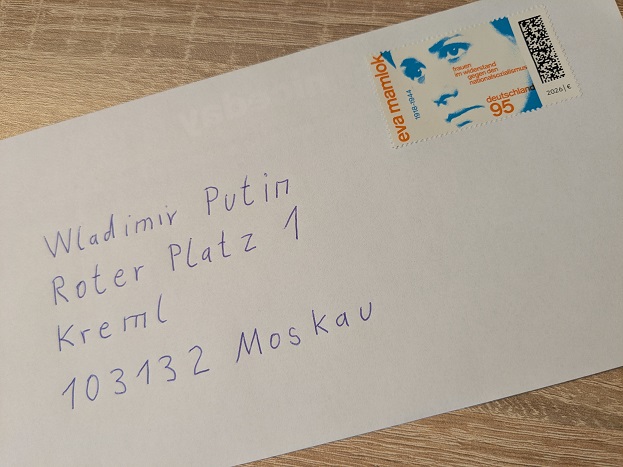 eva mamlok
1918-1944
frauen
im widerstand
gegen den
nationalsozialismus
deutschland
95
2026 | €
Wladimir Putin
Roter Platz 1
Kreml
103132 Moskau